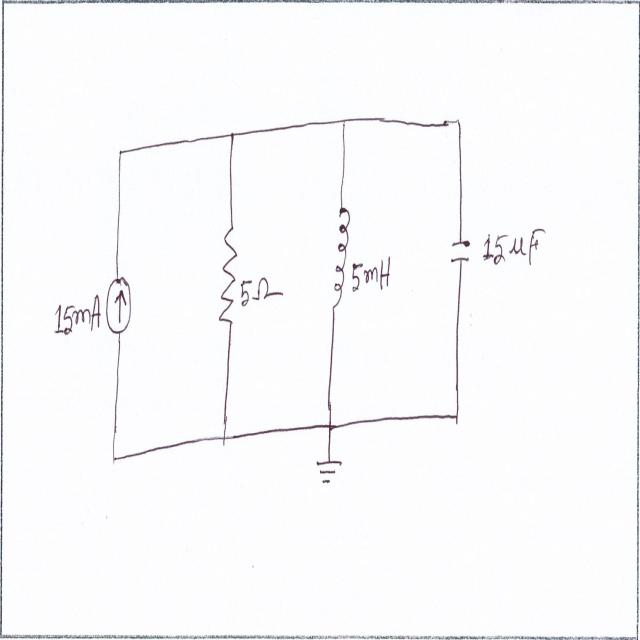 15mA
5Ω
5mH
15uF